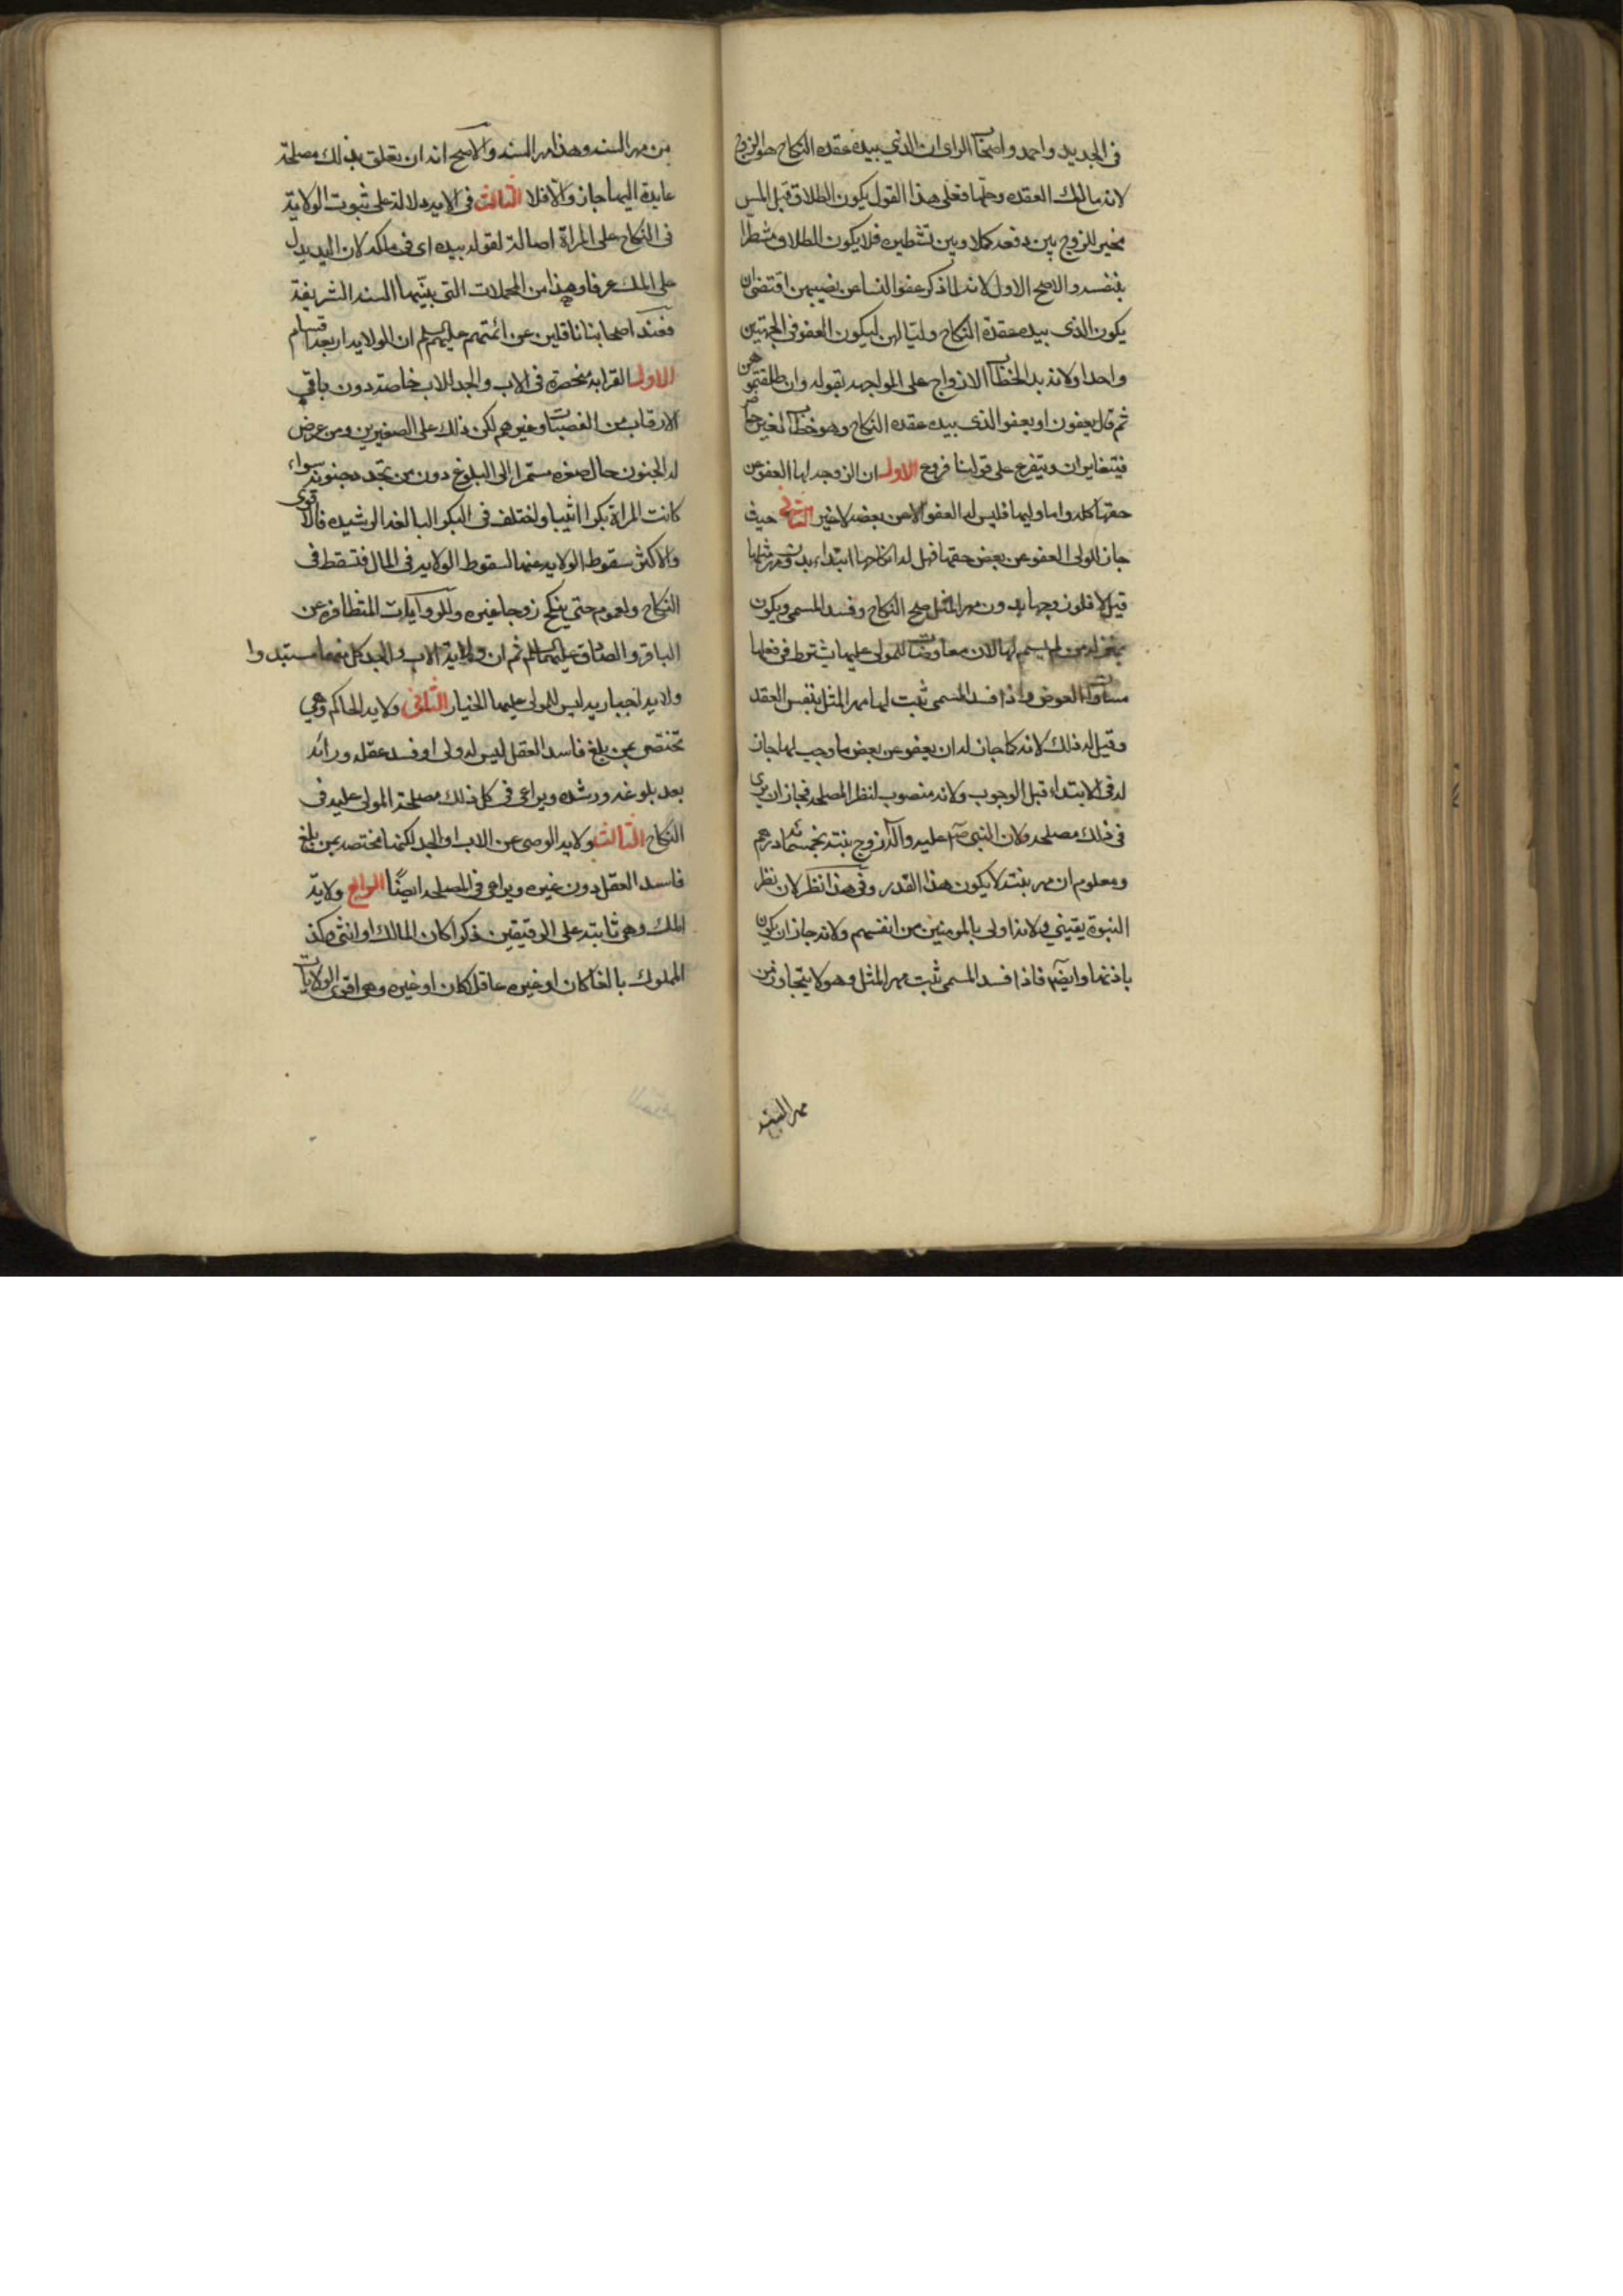 في الجديد واحمد واصحاب الراى ان الذي بيده عقده النكاح هو الزوج
لانه مالك العقده وحلها فعلى هذا القول يكون الطلاق قبل المس
مخير للزوج بين دفعه كملا وبين تشطيره فلا يكون الطلاق مشطرا
بنفسه والاصح الاول لانه لما ذكر عفو النسا عن نصيبهن اقتضى ان
يكون الذى بيده عقدة النكاح وليا لهن ليكون العفو في الجهتين
واحدا ولانه بدا الخطاب الازواج على المواجهه بقوله وان طلقتموهن
ثم قال يعفون او يعفو الذى بيده عقده النكاح وهو خطاب لغير حاضر
فيتغايران ويتفرع على قولنا فروع الاول ان الزوجه لها العفو عن
حقها كله واما وليها فليس له العفو الا عن بعضه لا غير الثاني حيث
جاز للولى العفو عن بعض حقها فهل له انكاحها ابتداء بدون مهر مثلها
قيل لا فلو زوجها بدون مهر المثل صح النكاح وفسد المسمى ويكون
بمنزلة من لم يسم لها لان معاوضات المولى عليها يشترط في فعلها
مساواة العوض واذا فسد المسمى ثبت لها مهر المثل بنفس العقد
وقيل له ذلك لانه كما جاز له ان يعفو عن بعض ما وجب لها جاز
له في الابتداء قبل الوجوب ولانه منصوب لنظر المصلحه فجاز ان يرى
في ذلك مصلحه ولان النبي صلم عليه وآله زوج بنته بخمسمائه درهم
ومعلوم ان مهر بنته لا يكون هذا القدر وفي هذا نظر لان نظر
النبوة يقيني ولانه اولى بالمومنين من انفسهم ولانه جاز ان يكون
باذنها وايضا فاذا فسد المسمى ثبت مهر المثل وهو لا يتجاوز من
مهر السنه
من مهر السنه وهذا مهر السنه والاصح انه ان تعلق بذلك مصلحة
عايدة اليها جاز والا فلا الثالث في الايه دلالة على ثبوت الولاية
في النكاح على المراة اصالة لقوله بيده اى في ملكه لان اليد يدل
على الملك عرفا وهذا من المجملات التى بينها السنه الشريفة
فعند اصحابنا ناقلين عن ائمتهم عليهم السلم ان الولايه اربعة اقسام
الاول القرابه منحصرة في الاب والجد للاب خاصة دون باقي
الاقارب من العصبات وغيرهم لكن ذلك على الصغيرين ومن عرض
له الجنون حال صغره مستمرا الى البلوغ دون من تجدد جنونه سواء
كانت المراة بكرا او ثيبا واختلف في البكر البالغه الرشيده فالاقوى
والاكثر سقوط الولايه عنها لسقوط الولايه في المال فتسقط في
النكاح ولعموم حتى ينكح زوجا غيره وللروايات المتظافره عن
الباقر والصادق عليهما السلم ثم ان ولاية الاب والجد كل منهما مستبد وا
ولايه اجباريه ليس للمولى عليها الخيار الثاني ولايه الحاكم وهي
تختص بمن بلغ فاسد العقل ليس له ولى او فسد عقله ورائه
بعد بلوغه ورشده ويراعى في كل ذلك مصلحة المولى عليه في
النكاح الثالث ولايه الوصى عن الاب او الجد لكنها مختصه بمن بلغ
فاسد العقل دون غيره ويراعى في المصلحه ايضا الرابع ولاية
الملك وهي ثابته على الرقيقين ذكرا كان المالك او انثى وكذ
المملوك بالغا كان او غيره عاقلا كان او غيره وهى اقوى الولايات